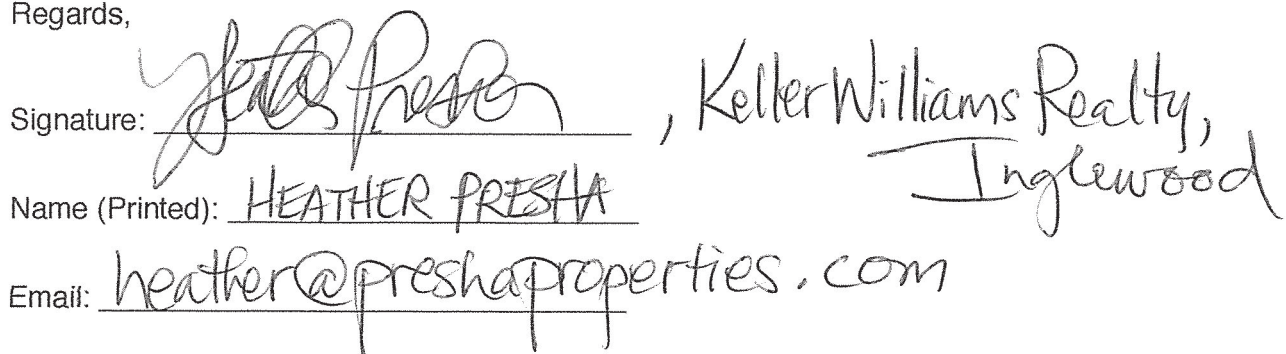 Regards,
Signature: Heather Presha , Keller Williams Realty,
Inglewood
Name (Printed): HEATHER PRESHA
Email: heather@preshaproperties.com